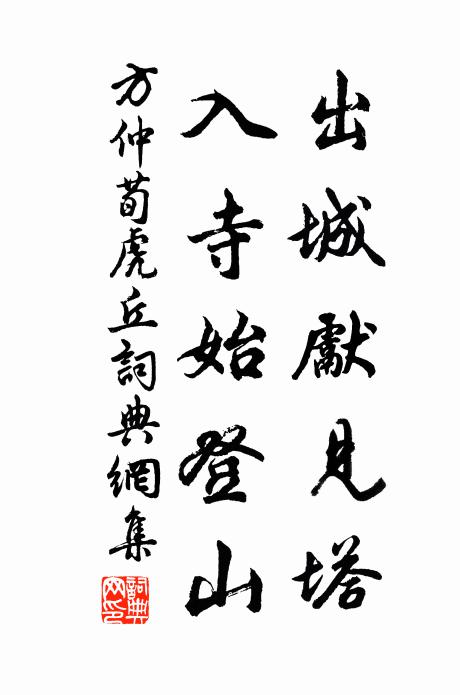 出城獻見塔
入寺始登山
方仲荀虎丘詞典網集
詞典網印